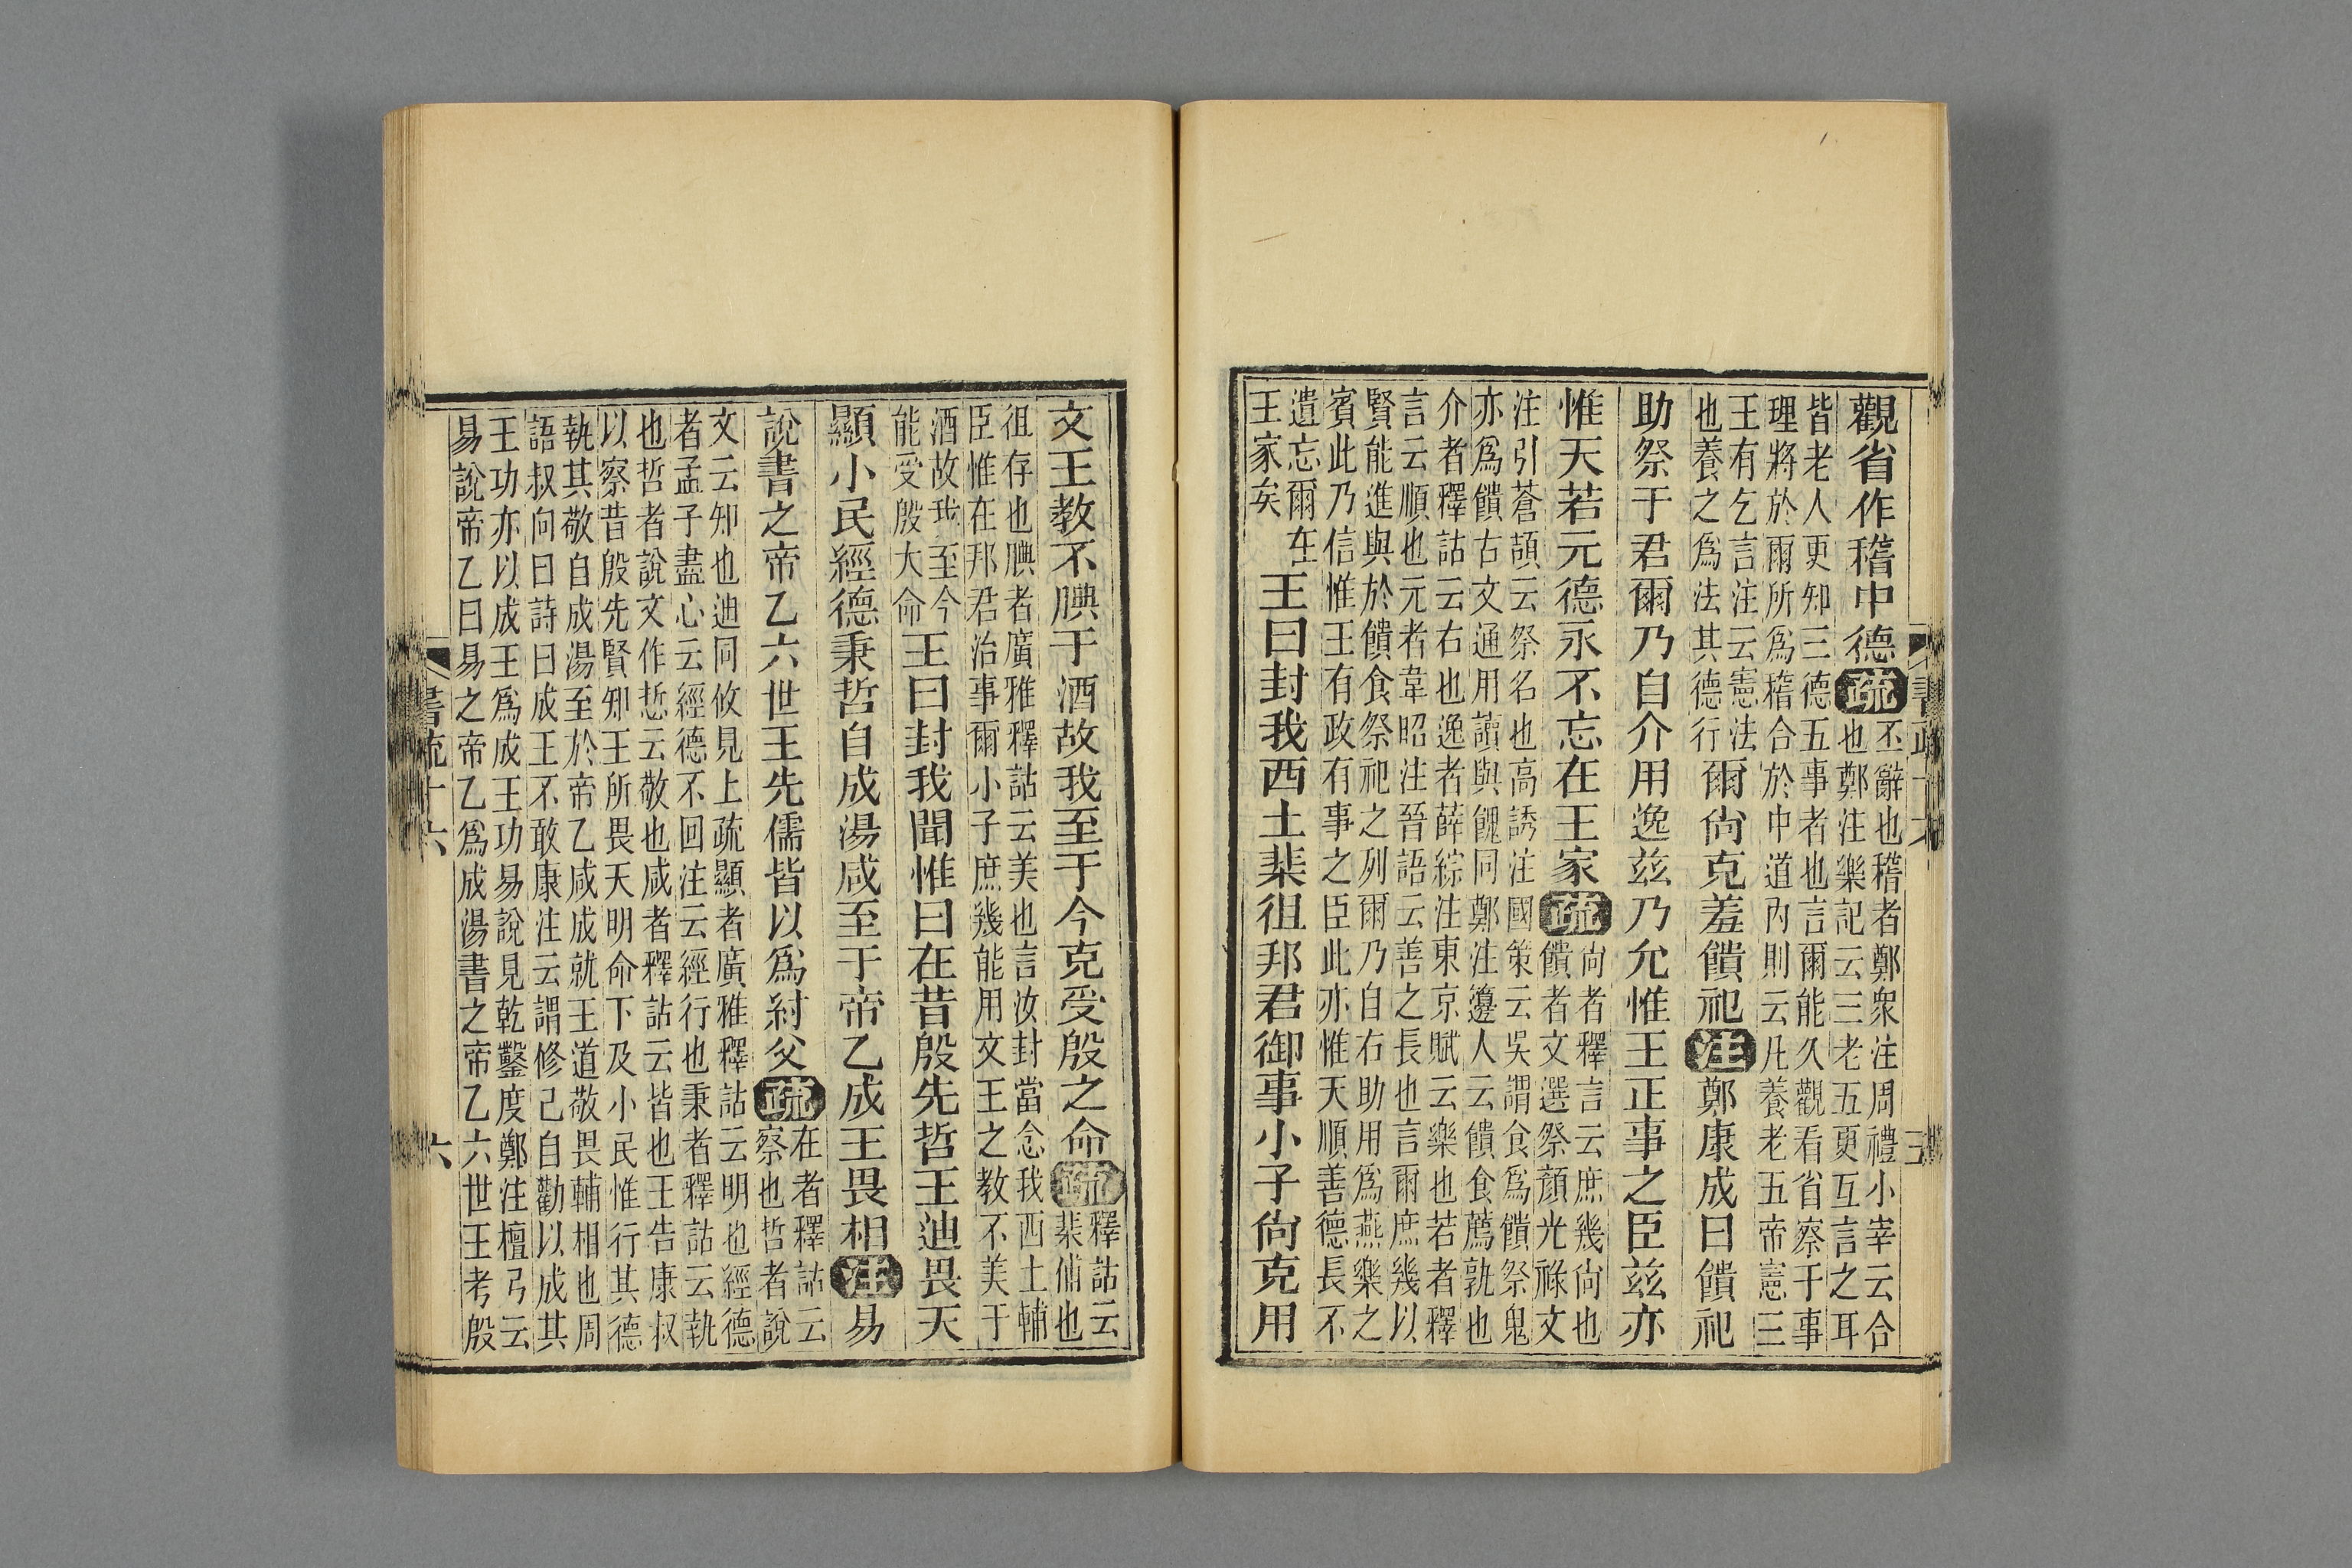 觀省作稽中德疏丕辭也稽者鄭衆注周禮小宰云合
也鄭注樂記云三老五更互言之耳
皆老人更知三德五事者也言爾能久觀看省察于事
理將於爾所爲稽合於中道內則云凡養老五帝憲三
王有乞言注云憲法
也養之爲法其德行
爾尙克羞饋祀注鄭康成曰饋祀
助祭于君爾乃自介用逸兹乃允惟王正事之臣兹亦
惟天若元德永不忘在王家疏尙者釋言云庶幾尙也
饋者文選祭顏光祿文
注引蒼頡云祭名也高誘注國策云吳謂食爲饋祭鬼
亦爲饋古文通用讀與餽同鄭注籩人云饋食薦孰也
介者釋詁云右也逸者薛綜注東京賦云樂也若者釋
言云順也元者韋昭注晉語云善之長也言爾庶幾以
賢能進與於饋食祭祀之列爾乃自右助用爲燕樂之
賓此乃信惟王有政有事之臣此亦惟天順善德長不
遺忘爾在
王家矣
王曰封我西土棐徂邦君御事小子尙克用
文王教不腆于酒故我至于今克受殷之命疏釋詁云
棐俌也
徂存也腆者廣雅釋詁云美也言汝封當念我西土輔
臣惟在邦君治事爾小子庶幾能用文王之教不美于
酒故我至今
能受殷大命
王曰封我聞惟曰在昔殷先哲王迪畏天
顯小民經德秉哲自成湯咸至于帝乙成王畏相注易
說書之帝乙六世王先儒皆以爲紂父疏在者釋詁云
察也哲者說
文云知也迪同攸見上疏顯者廣雅釋詁云明也經德
者孟子盡心云經德不回注云經行也秉者釋詁云執
也哲者說文作悊云敬也咸者釋詁云皆也王告康叔
以察昔殷先賢知王所畏天明命下及小民惟行其德
執其敬自成湯至於帝乙咸成就王道敬畏輔相也周
語叔向曰詩曰成王不敢康注云謂修己自勸以成其
王功亦以成王爲成王功易說見乾鑿度鄭注檀弓云
易說帝乙曰易之帝乙爲成湯書之帝乙六世王考殷
書疏十六
六